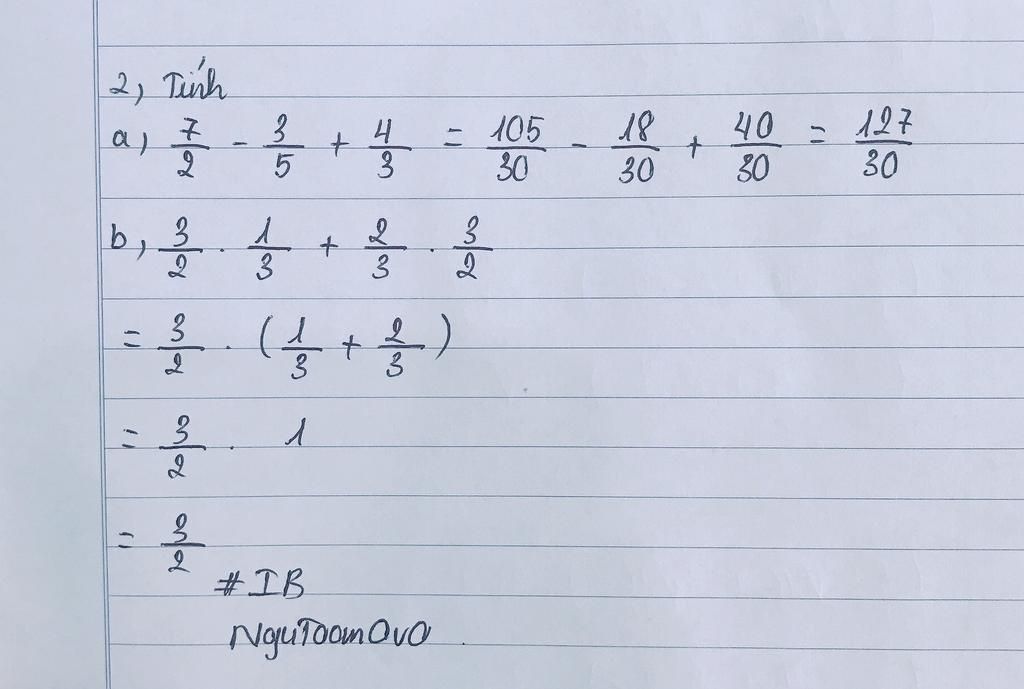 2, Tính
a, 7/2 - 3/5 + 4/3 = 105/30 - 18/30 + 40/30 = 127/30
b, 3/2 . 1/3 + 2/3 . 3/2
= 3/2 . (1/3 + 2/3)
= 3/2 . 1
= 3/2
#IB
NguToanOvO